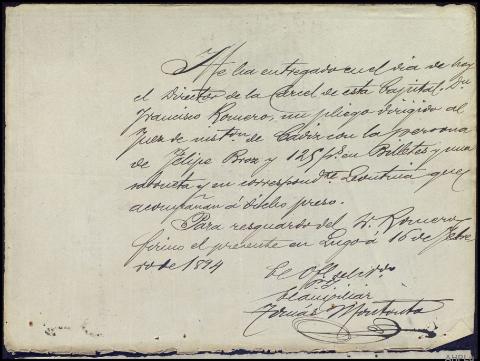 Me ha entregado en el dia de hoy
el Director de la Carcel de esta Capital, Dn
Francisco Romero, un pliego dirigido al
Juez de instón de Cadiz con la persona
de Felipe Broz y 125 ps. en Billetes y una
saboneta y su correspondte que
acompañan á dicho preso.
Para resguardo del Sr. Romero
firmo el presente en Lugo á 16 de Febre
ro de 1894
El Ofl del
P.O.
El auxiliar
Tomas Montouto
AHPLU